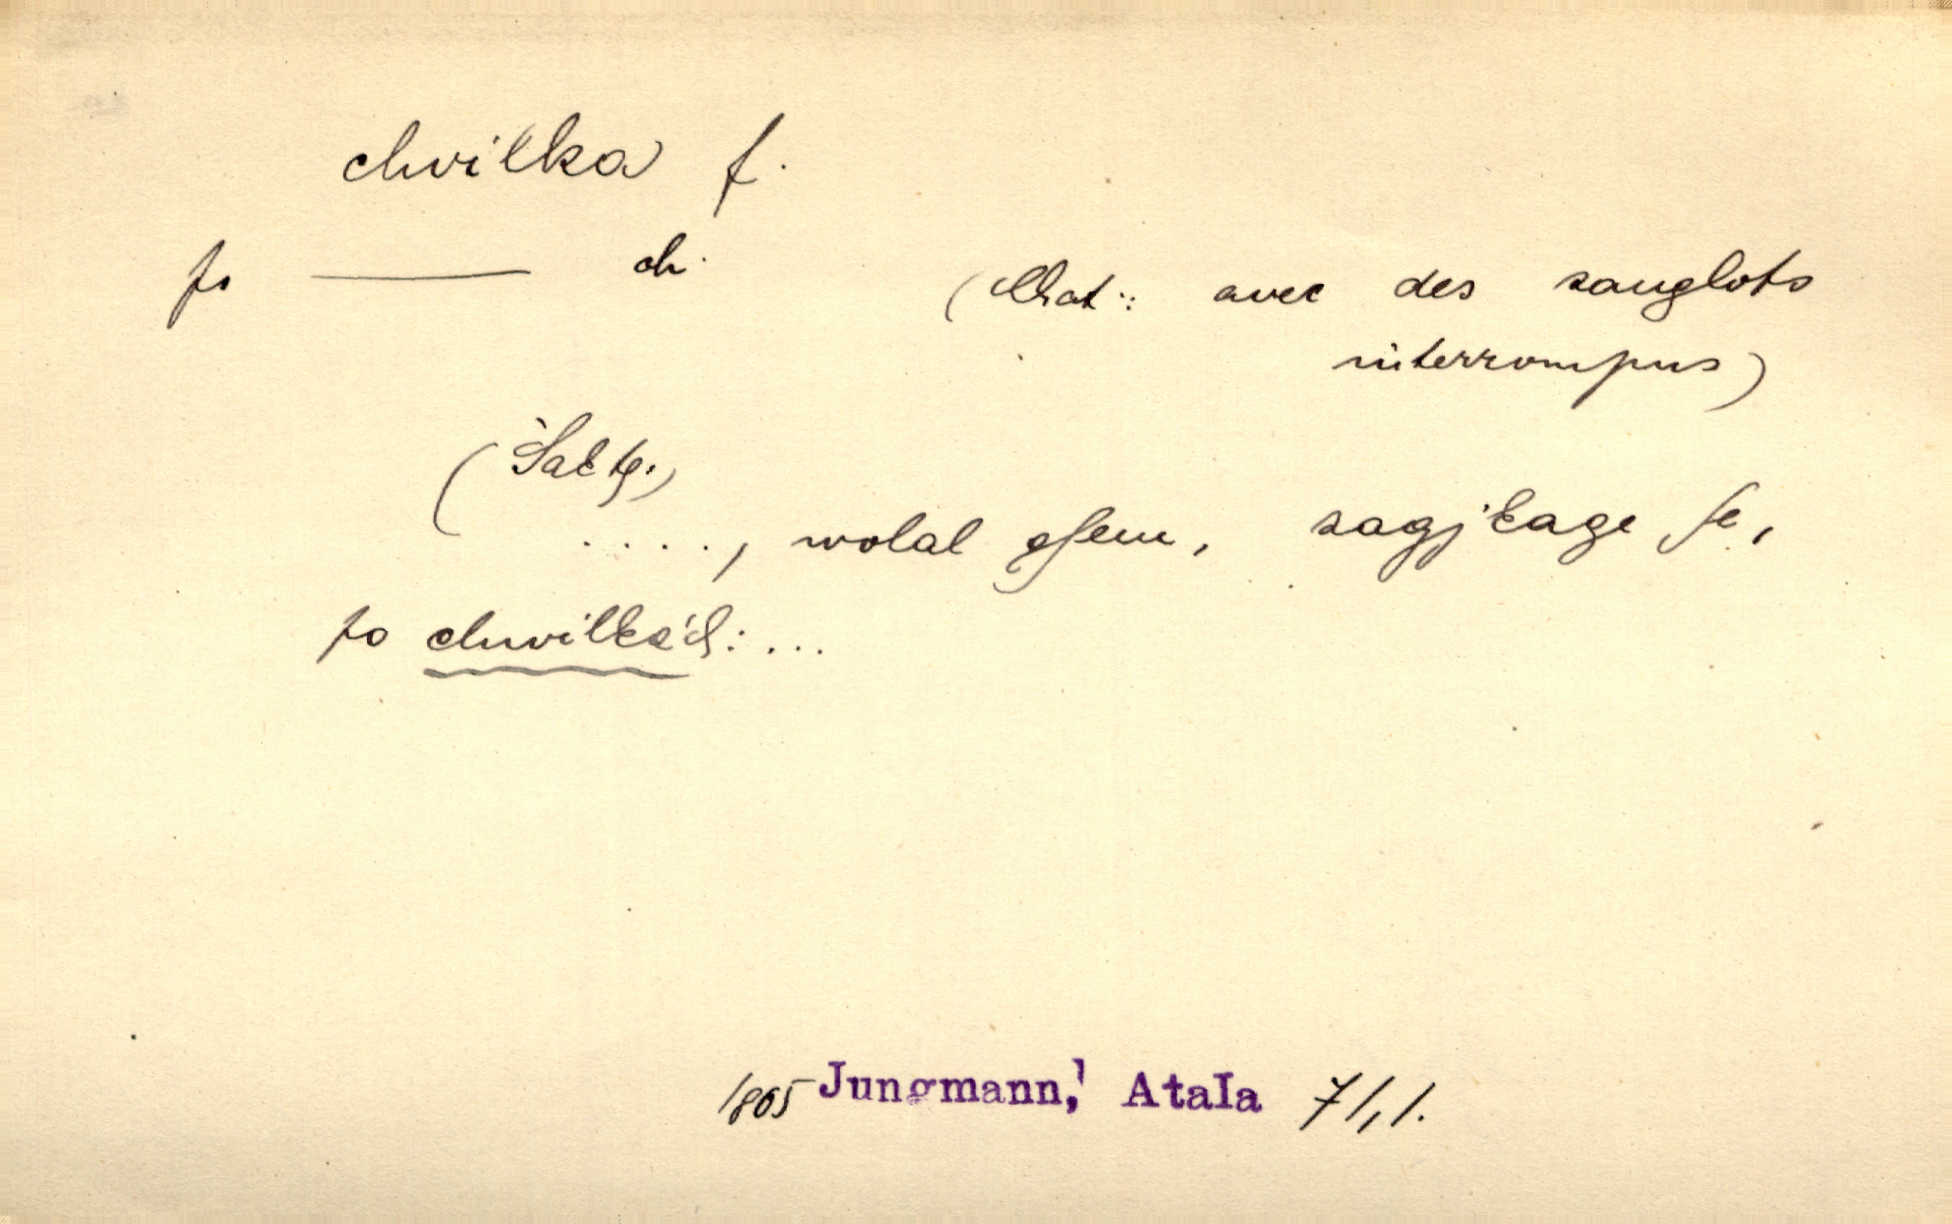 chvilka f.
po ——— ch. (Chat.: avec des sanglots
interrompus)
(Šakty.)
...., wolal gsem, zagjkage se,
po chwilkách: ...
1805 Jungmann,¹ Atala 71,1.